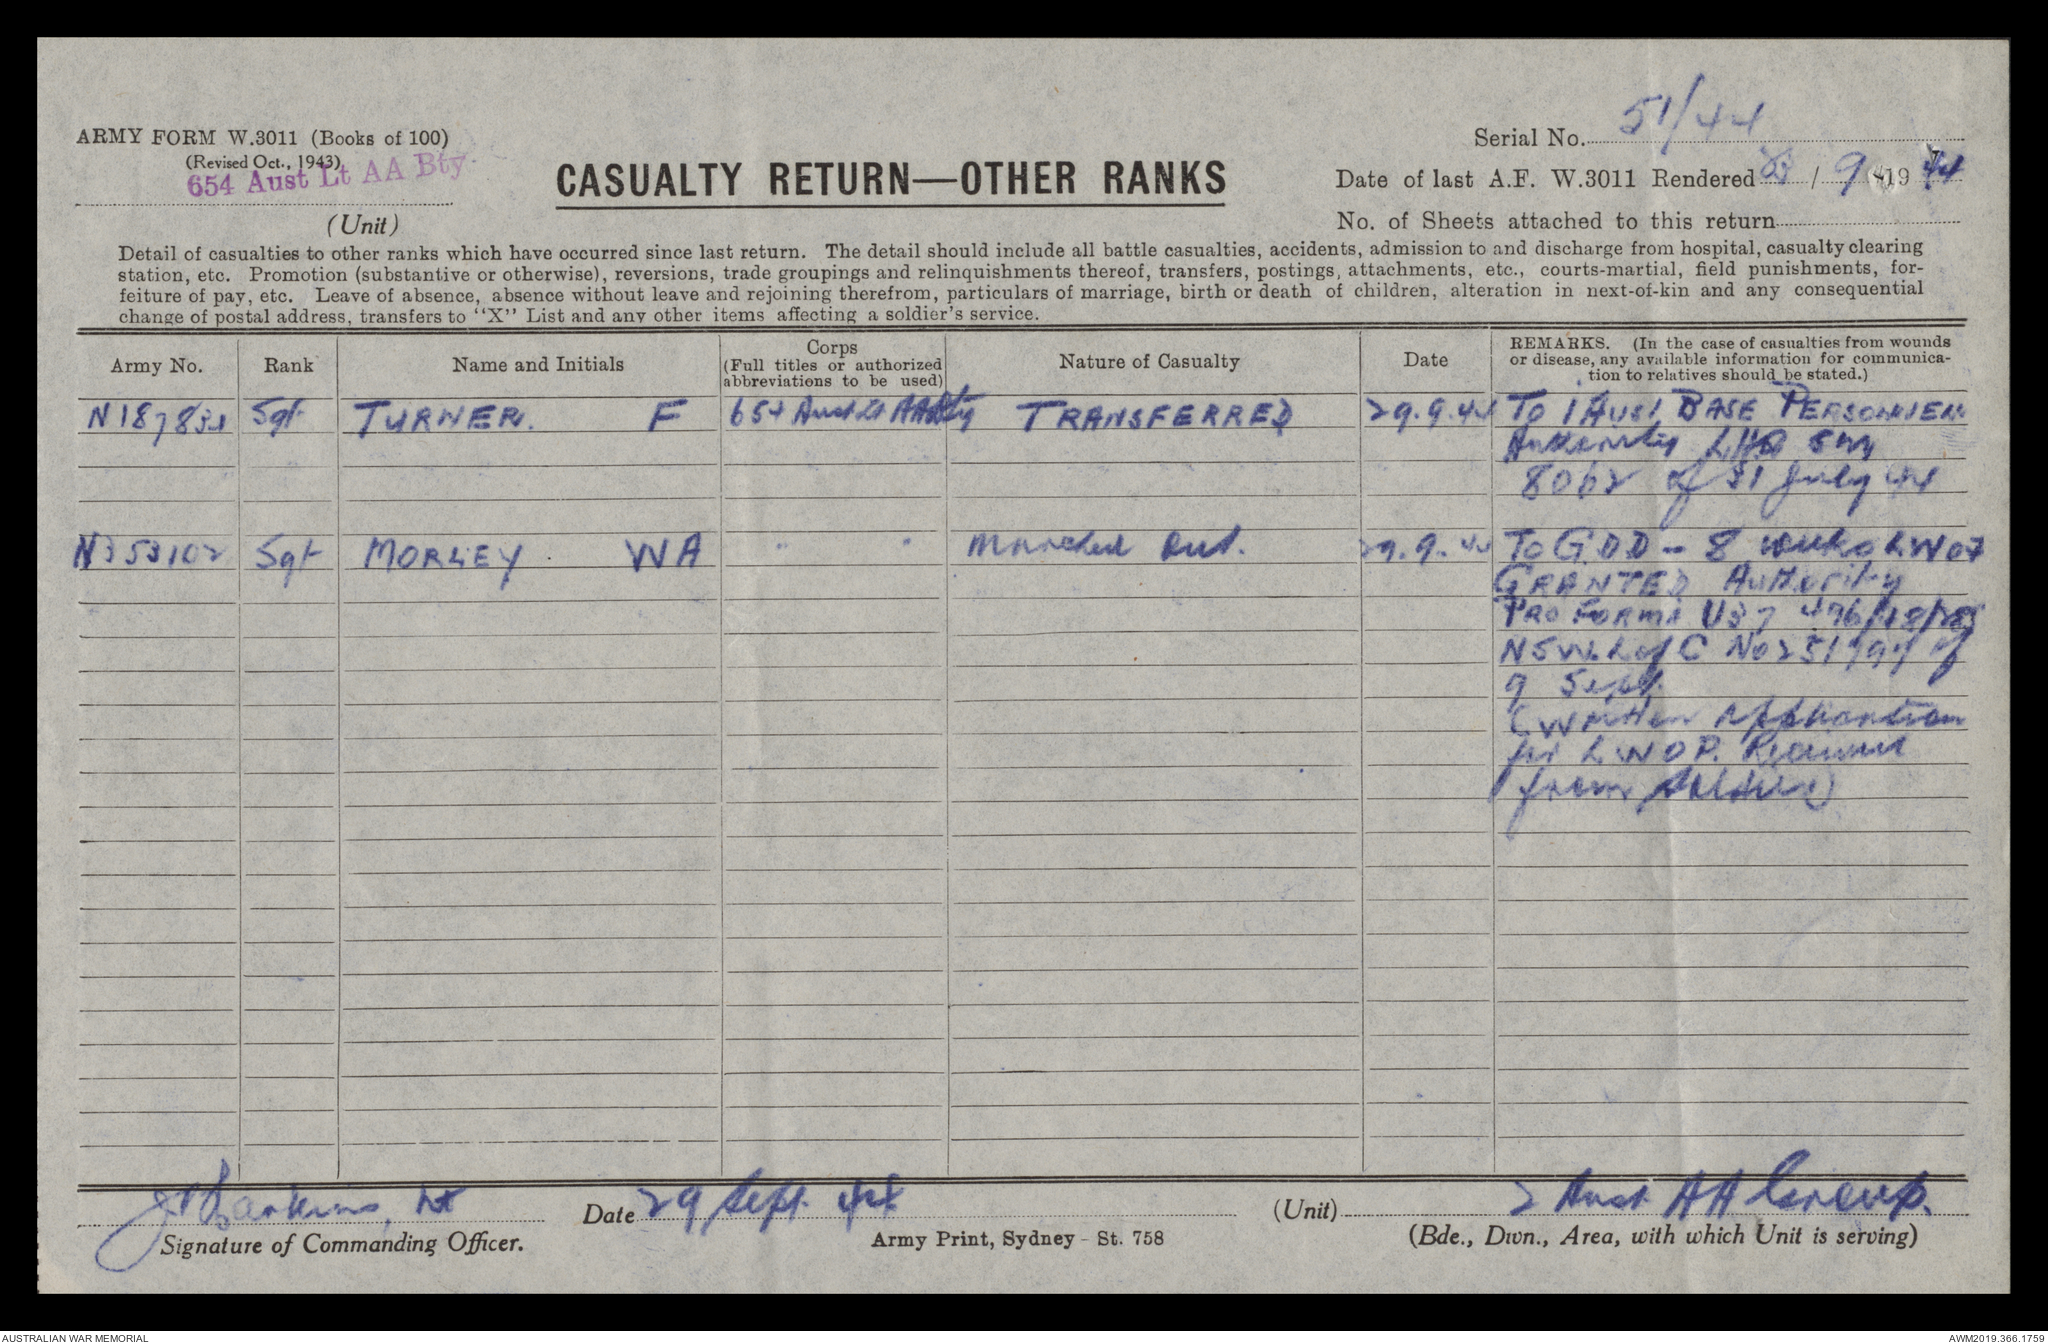 Serial No. 51/44
ARMY FORM W.3011 (Books of 100)
(Revised Oct., 1943)
654 Aust Lt AA Bty
(Unit)
CASUALTY RETURN—OTHER RANKS
Date of last A.F. W.3011 Rendered / 9 19 44
No. of Sheets attached to this return
Detail of casualties to other ranks which have occurred since last return. The detail should include all battle casualties, accidents, admission to and discharge from hospital, casualty clearing
station, etc. Promotion (substantive or otherwise), reversions, trade groupings and relinquishments thereof, transfers, postings, attachments, etc., courts-martial, field punishments, for-
feiture of pay, etc. Leave of absence, absence without leave and rejoining therefrom, particulars of marriage, birth or death of children, alteration in next-of-kin and any consequential
change of postal address, transfers to "X" List and any other items affecting a soldier's service.
Army No. Rank Name and Initials Corps (Full titles or authorized abbreviations to be used) Nature of Casualty Date REMARKS. (In the case of casualties from wounds or disease, any available information for communica-tion to relatives should be stated.)
Sgt TURNER. F 654 Aust Lt AA Bty TRANSFERRED 29.9.44 To 1 Aust BASE PERSONNEL
Authority LHQ SM
8062 of 31 July 44
N353102 Sgt MORLEY WA " " Marched Out. 29.9.44 To G.D.D - 8 weeks LWOP
GRANTED Authority
PRO FORMA U37
NSW. L of C of
9 Sept.
(Written Application
for L.W.O.P. Received
from Soldier)
Lt
Signature of Commanding Officer.
Date 29 Sept. 44
Army Print, Sydney - St. 758
(Unit) 2 Aust AA Group.
(Bde., Dwn., Area, with which Unit is serving)
AUSTRALIAN WAR MEMORIAL
AWM2019.366.1759